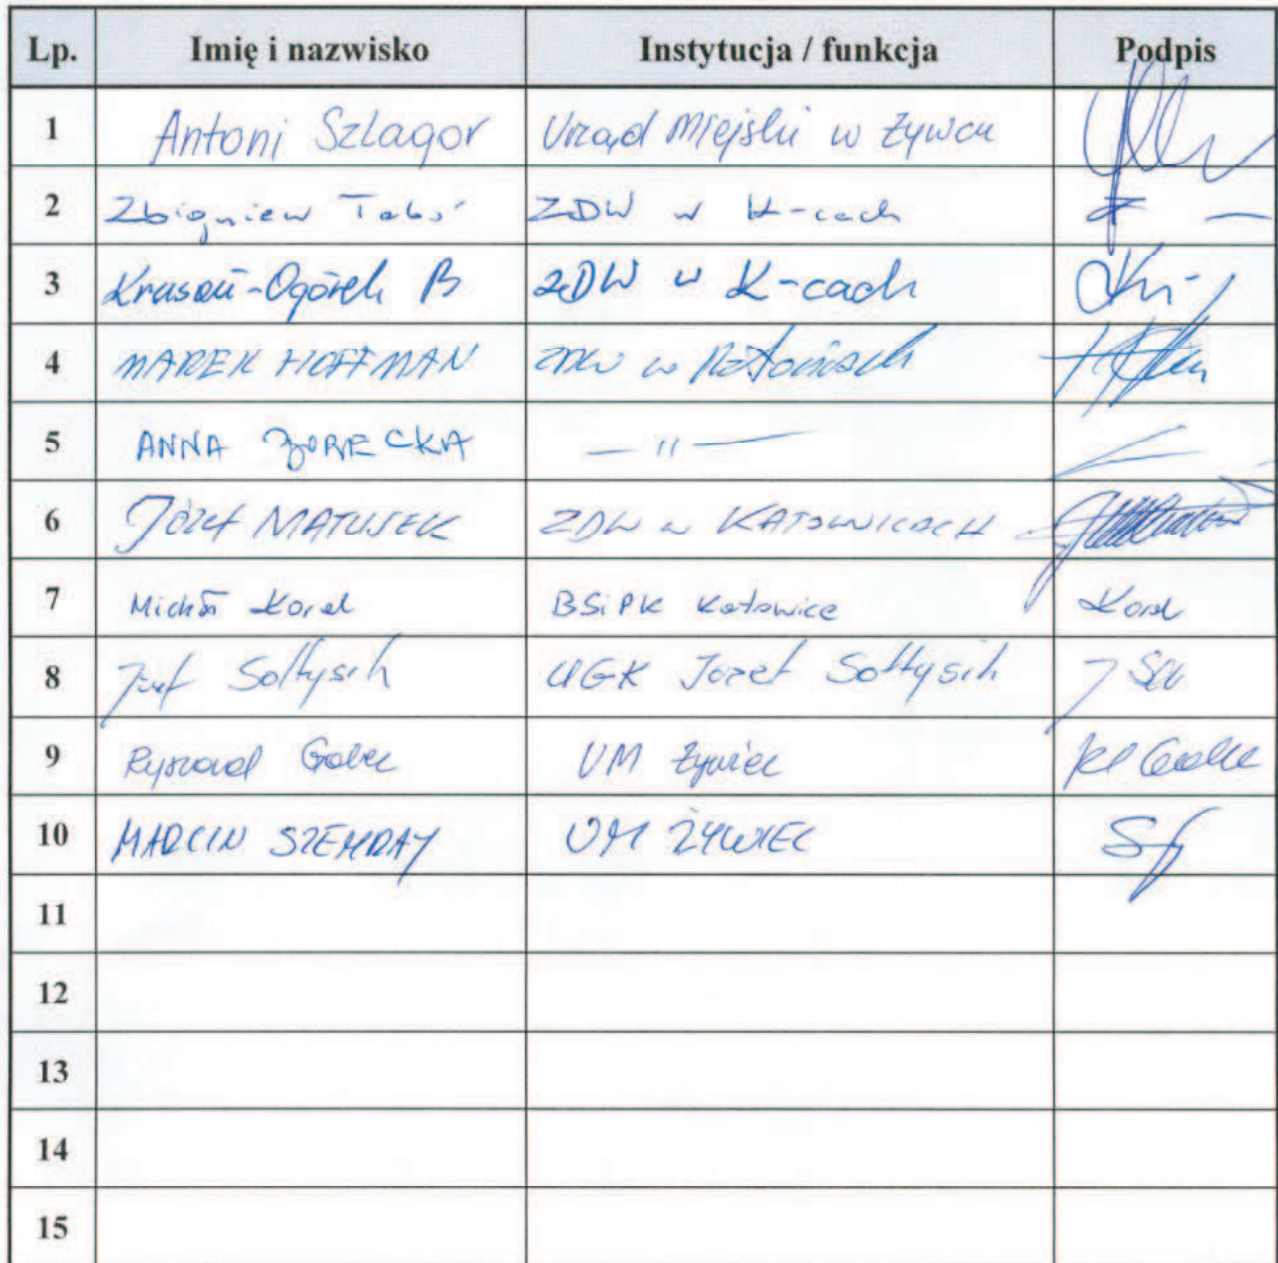 Lp. Imię i nazwisko Instytucja / funkcja Podpis
1 Antoni Szlagor Urząd Miejski w Żywcu
2 Zbigniew ZDW w K-cach
3 Krusoń-Ogórek B ZDW w K-cach
4 MAREK HOFFMAN ZDW w Katowicach
5 ANNA ŻORECKA — 11 —
6 Józef MATUSEK ZDW w KATOWICACH
7 Michał Koral BSiPK Katowice Koral
8 Józef Sołtysik UGK Józef Sołtysik
9 Ryszard UM Żywiec
10 MARCIN SZEMRAY UM ŻYWIEC
11
12
13
14
15